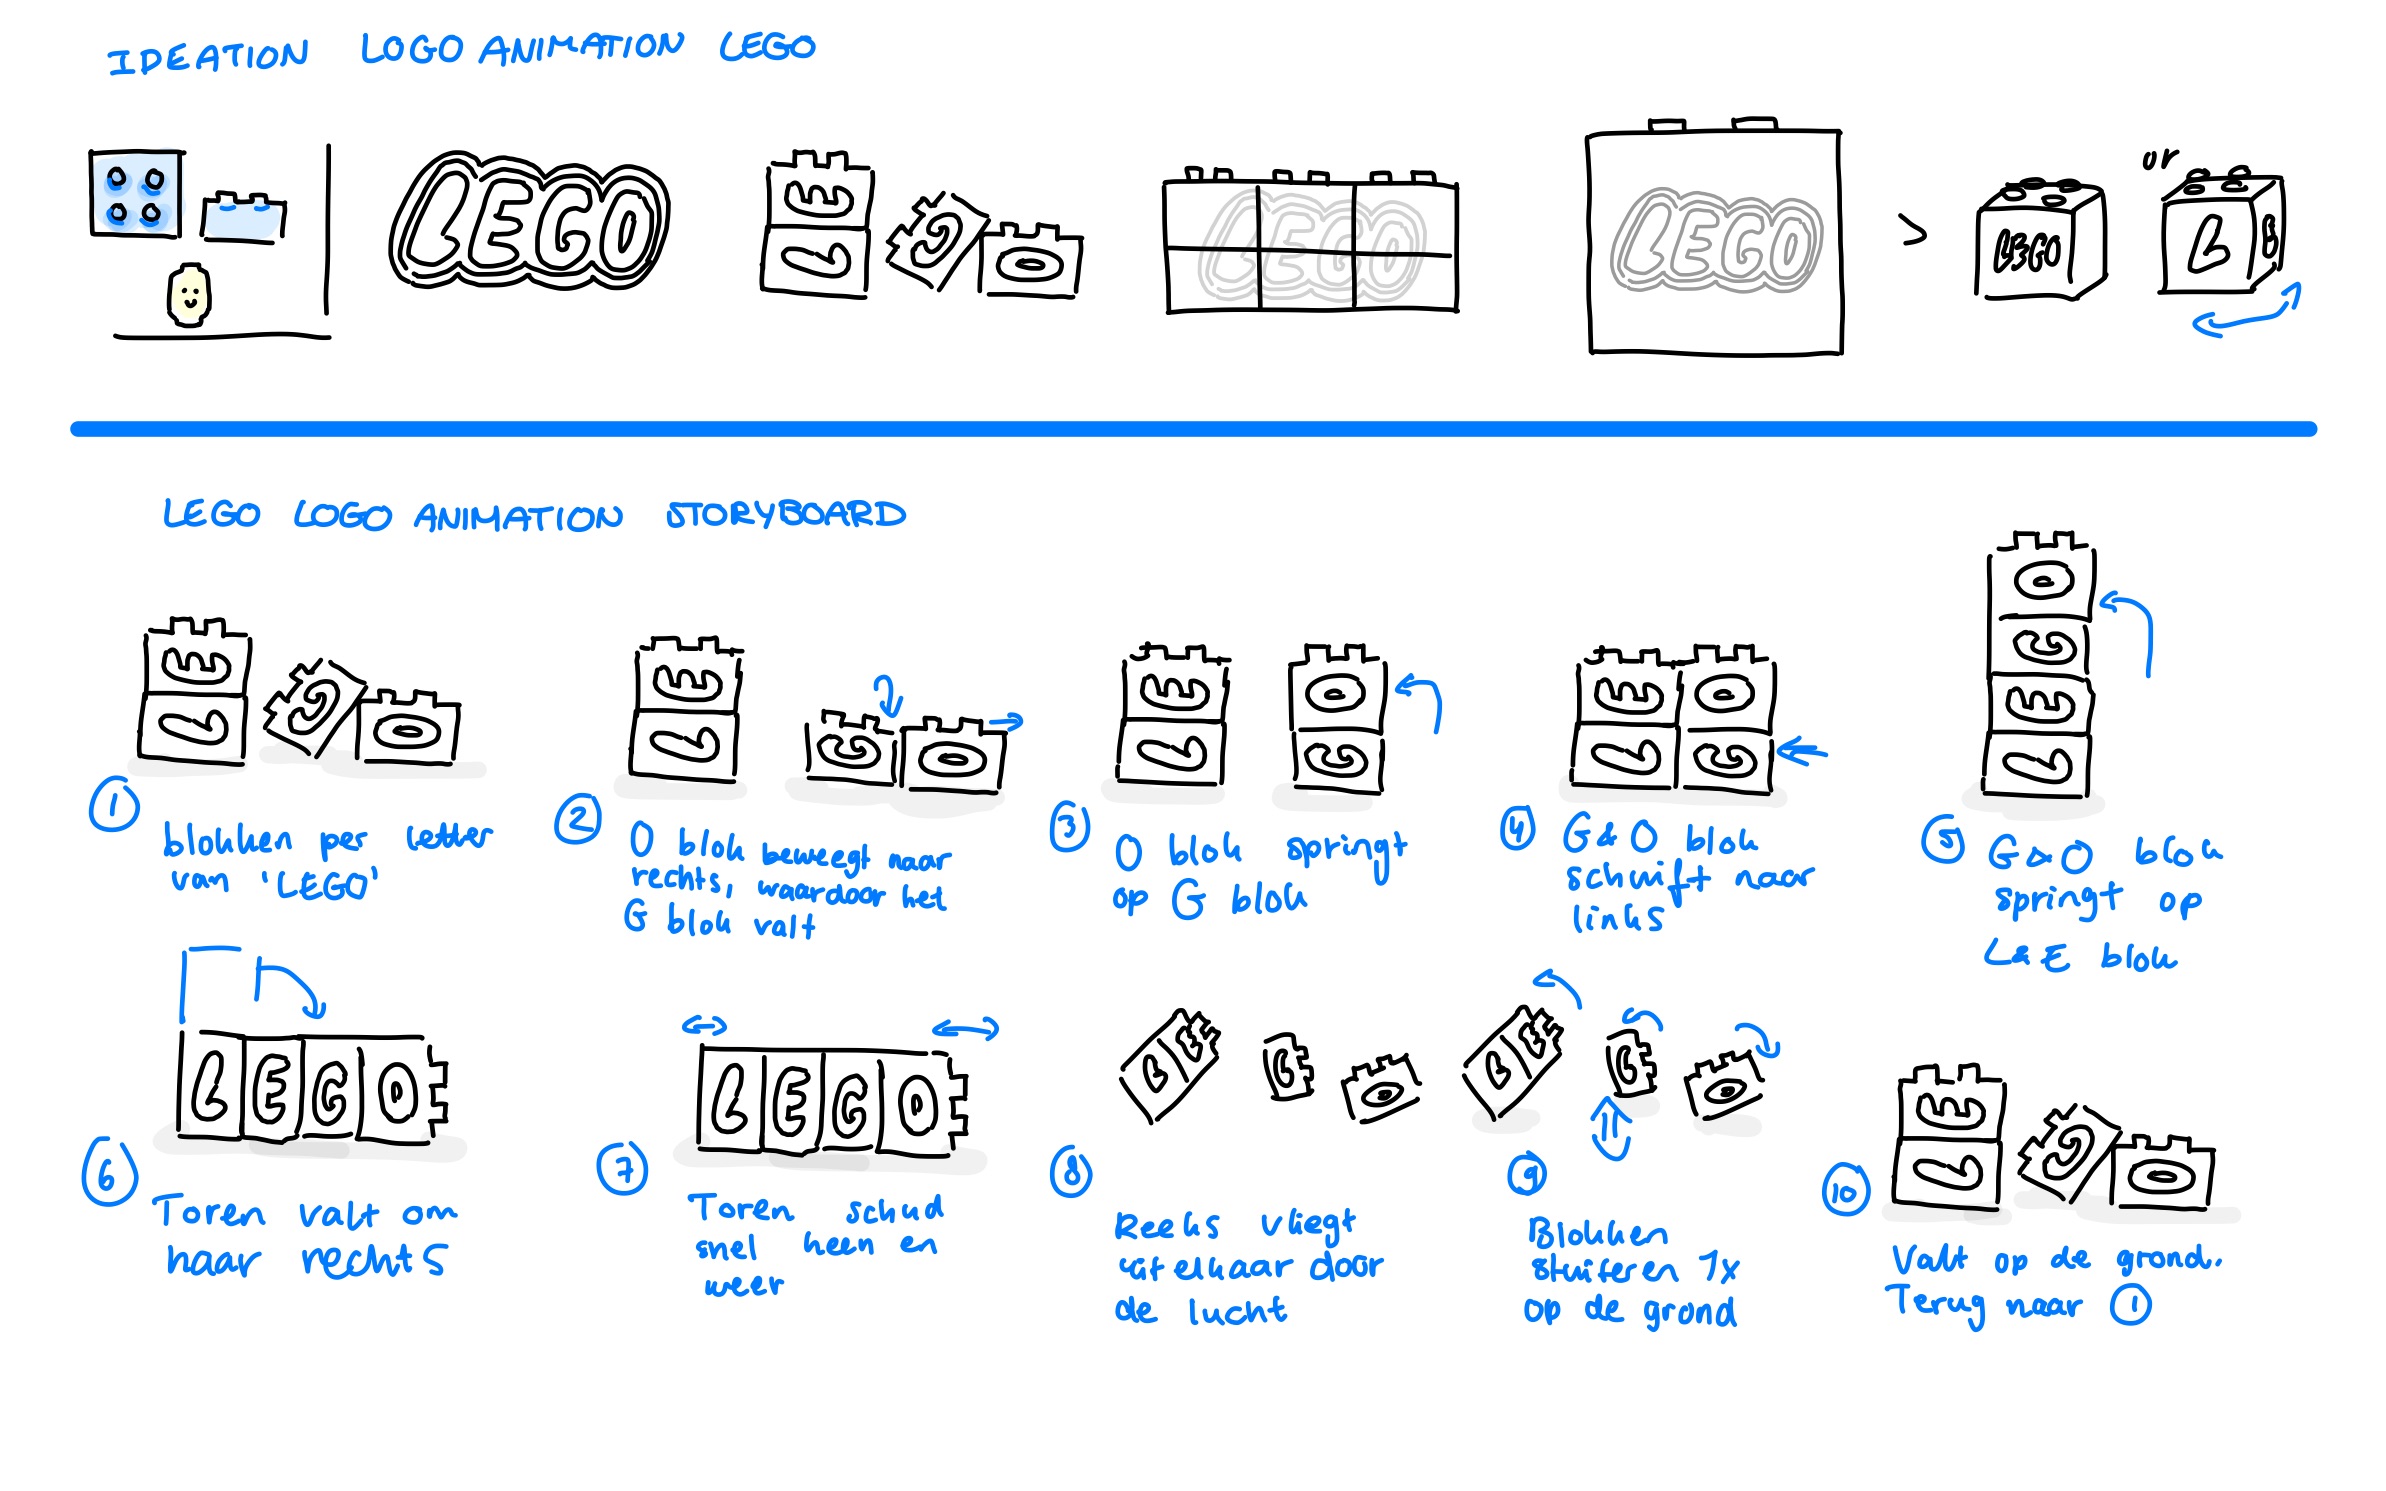 IDEATION LOGO ANIMATION LEGO
LEGO
E
L
G
O
LEGO
LEGO
>
LEGO
or
L
E
LEGO LOGO ANIMATION STORYBOARD
E
L
G
O
E
L
G
O
E
L
O
G
E
O
L
G
O
G
E
L
1
blokken per letter
van 'LEGO'
2
O blok beweegt naar
rechts, waardoor het
G blok valt
3
O blok springt
op G blok
4
G & O blok
schuift naar
links
5
G & O blok
springt op
L & E blok
LEGO
LEGO
LE
G
O
LE
G
O
E
L
G
O
6
Toren valt om
naar rechts
7
Toren schud
snel heen en
weer
8
Reeks vliegt
uitelkaar door
de lucht
9
Blokken
stuiteren 1x
op de grond
10
Valt op de grond.
Terug naar 1